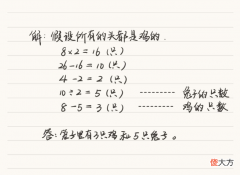 解：假设所有的头都是鸡的.
8×2=16（只）
26-16=10（只）
4-2=2（只）
10÷2=5（只）-------- 兔子的只数
8-5=3（只）-------- 鸡的只数
答：笼子里有3只鸡和5只兔子。
便大方